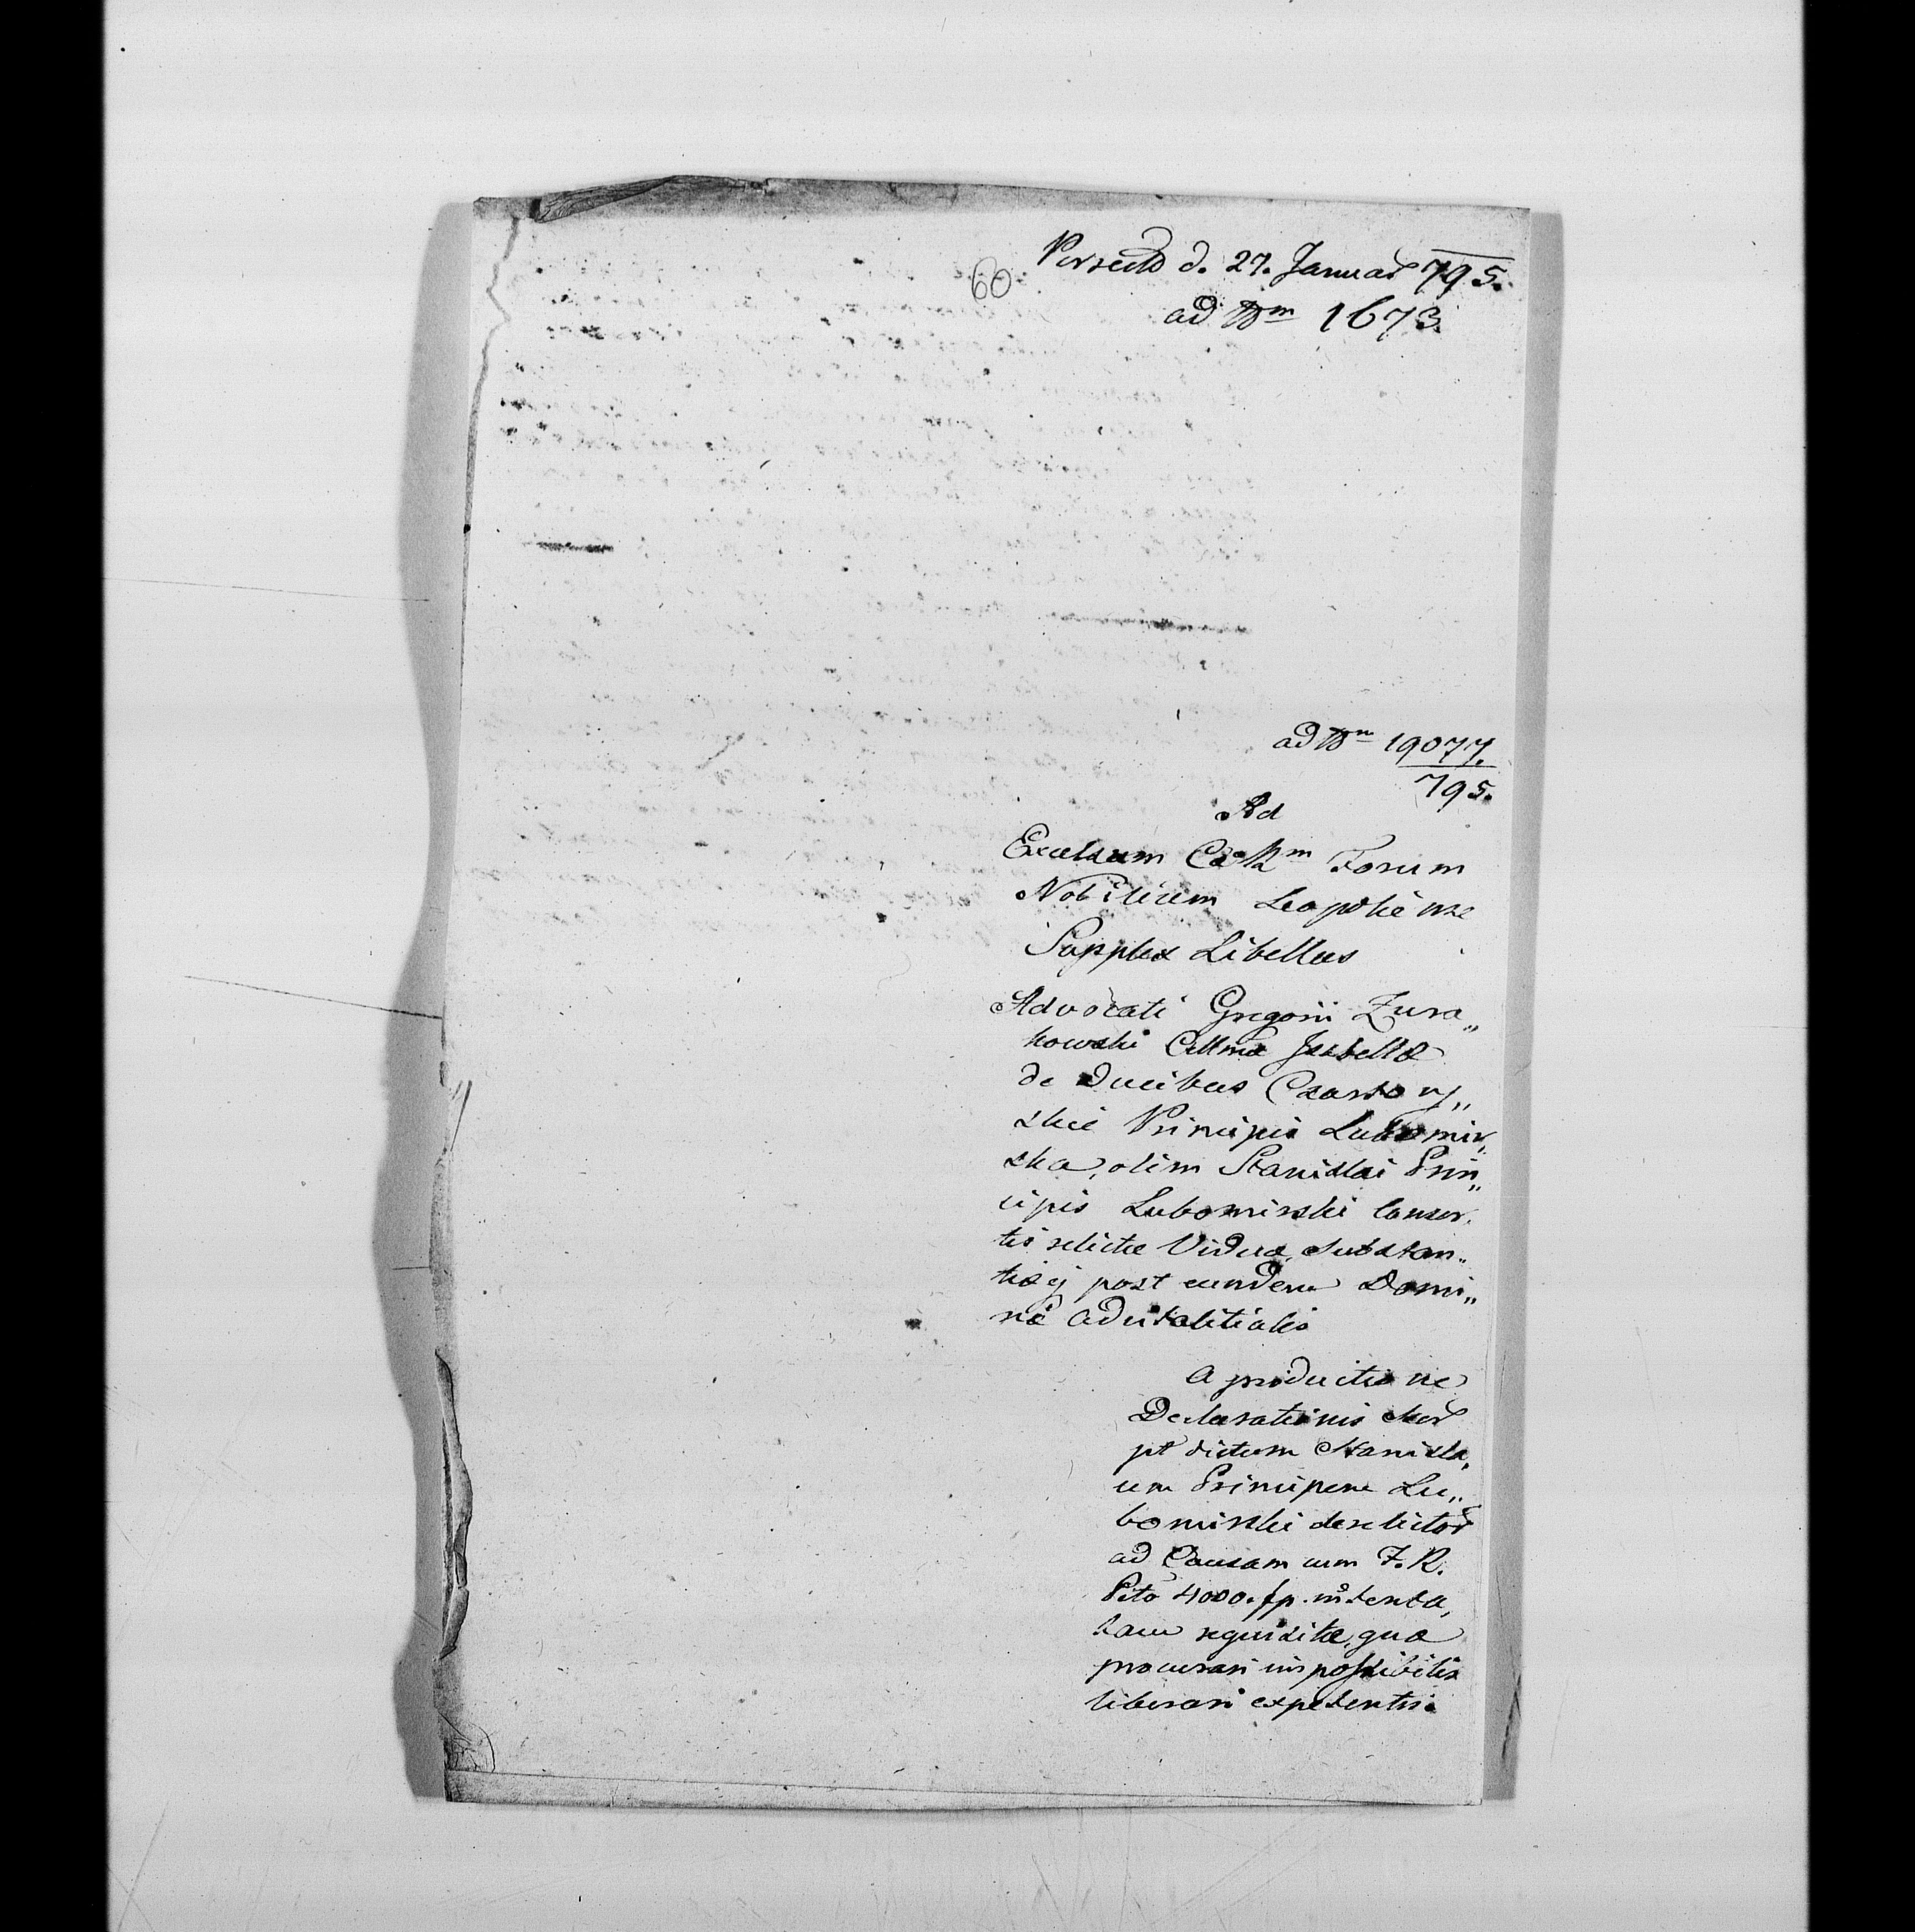 60
d. 27. Januar 795.
ad 1673.
ad 19077.
795.
Ad
Excelsum Forum
Nobilium Leopoliense
Supplex Libellus
Advocati Gregorii Zura„
kowski Cellmæ Isabellæ
de Ducibus Czartory„
skie Principis Lubomir„
ska, olim Stanislai Prin„
cipis Lubomirski Consor„
tis relictæ Viduæ, Substan„
tiæq post eundem Domi„
næ advitalitialis
a productione
Declarationis
pt dictum Stanisla„
um Principem Lu„
bomirski
ad Causam cum F. R.
Pcto 4000. fp. intenta„
tam requisitæ, qua
procurari impossibilis
liberari expetentis.